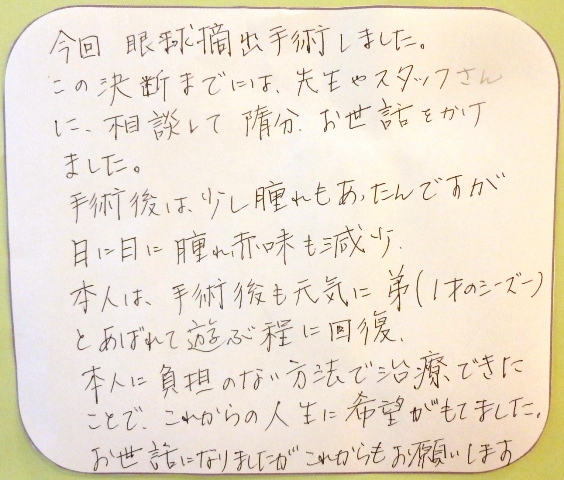 今回 眼球摘出手術しました。
この決断までには、先生やスタッフさん
に、相談して 随分、お世話をかけ
ました。
手術後は、少し腫れもあったんですが
日に日に腫れ、赤味も減少。
本人は、手術後も元気に弟(1才のシーズー)
とあばれて遊ぶ程に回復。
本人に負担のない方法で治療できた
ことで、これからの人生に希望がもてました。
お世話になりましたがこれからもお願いします